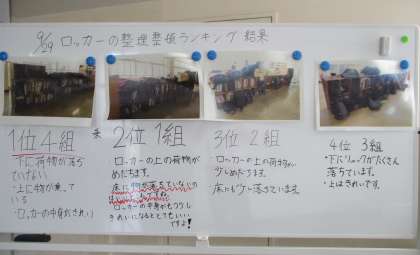 9/29 ロッカーの整理整頓ランキング 結果
1位 4組
・下に荷物が落ち
ていない
・上に物が乗って
いる
・ロッカーの中身がきれい
2位 1組
ロッカーの上の荷物が
めだちます。
床に物が落ちていないの
ロッカーの中身がもう少し
きれいになるととてもいい
ですよ!
3位 2組
・ロッカーの上の荷物が
少しめだちます。
床にも少し落ちています。
4位 3組
・下にリュックがたくさん
落ちています。
・上はきれいです。